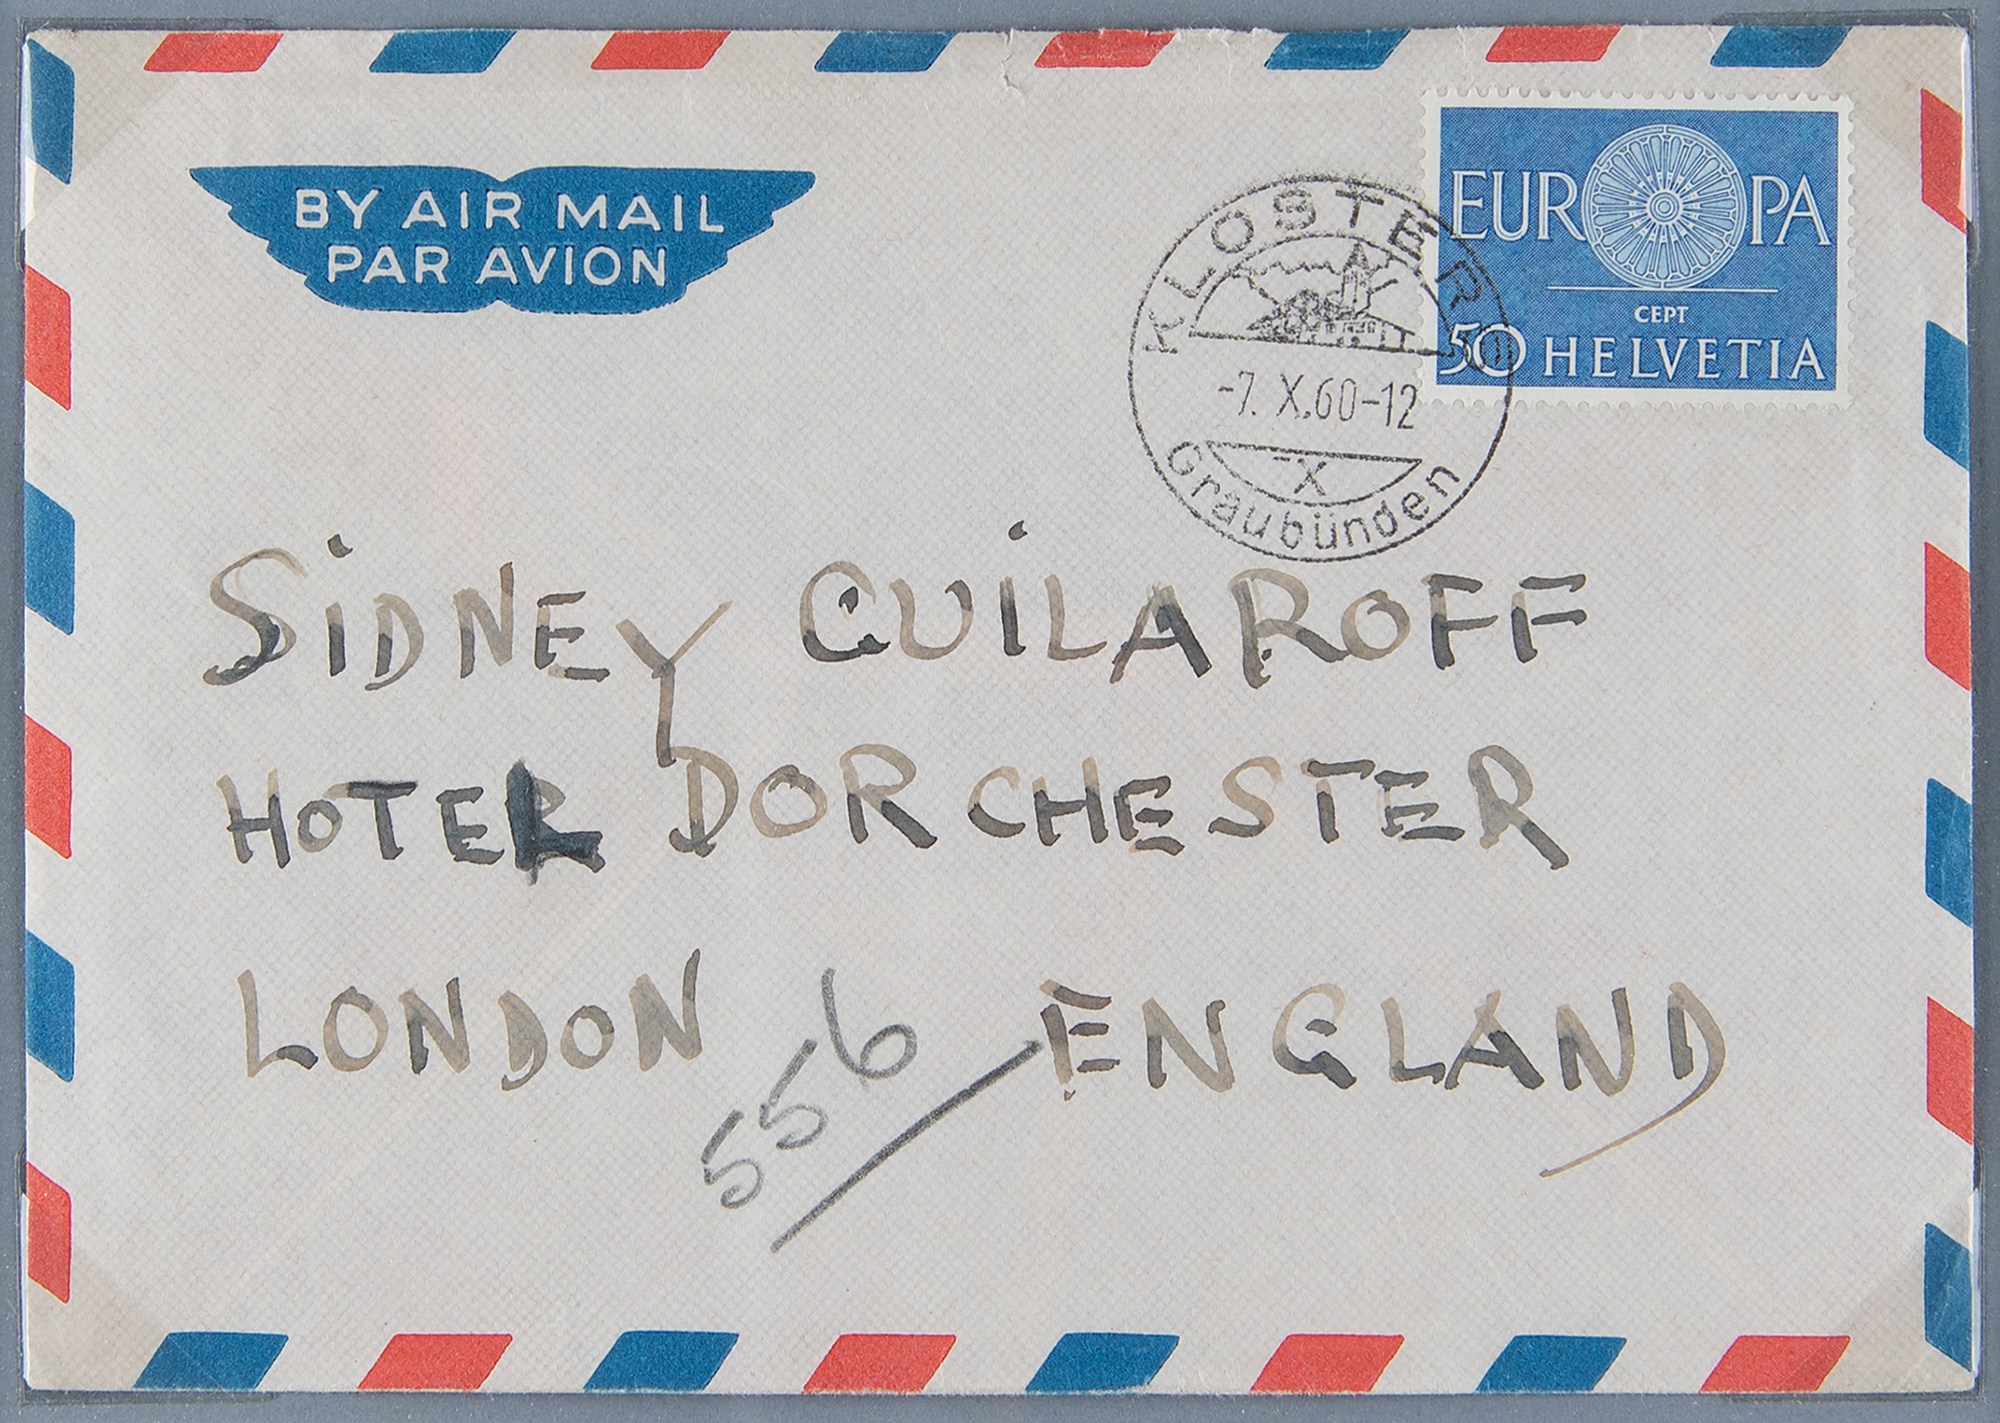 BY AIR MAIL
PAR AVION
EUROPA
CEPT
50 HELVETIA
KLOSTERS
-7. X.60-12
-X
Graubünden
SiDNEY GUiLAROFF
HOTEL DORCHESTER
LONDON ENGLAND
556